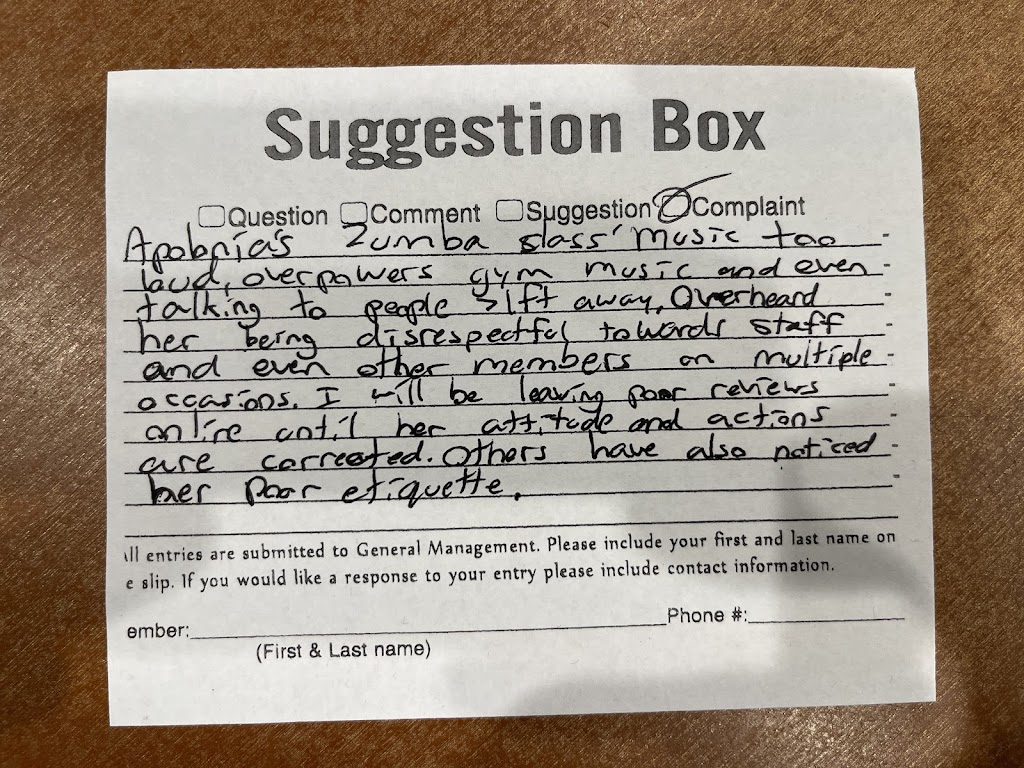 Suggestion Box
Question Comment Suggestion Complaint
Apolonia's Zumba slass' music too
loud, overpowers gym music and even
talking to people >1ft away. Overheard
her being disrespectful towards staff
and even other members on multiple
occasions. I will be leaving poor reviews
online until her attitude and actions
are corrected. Others have also noticed
her poor etiquette.
ll entries are submitted to General Management. Please include your first and last name on
e slip. If you would like a response to your entry please include contact information.
ember: Phone #:
(First & Last name)